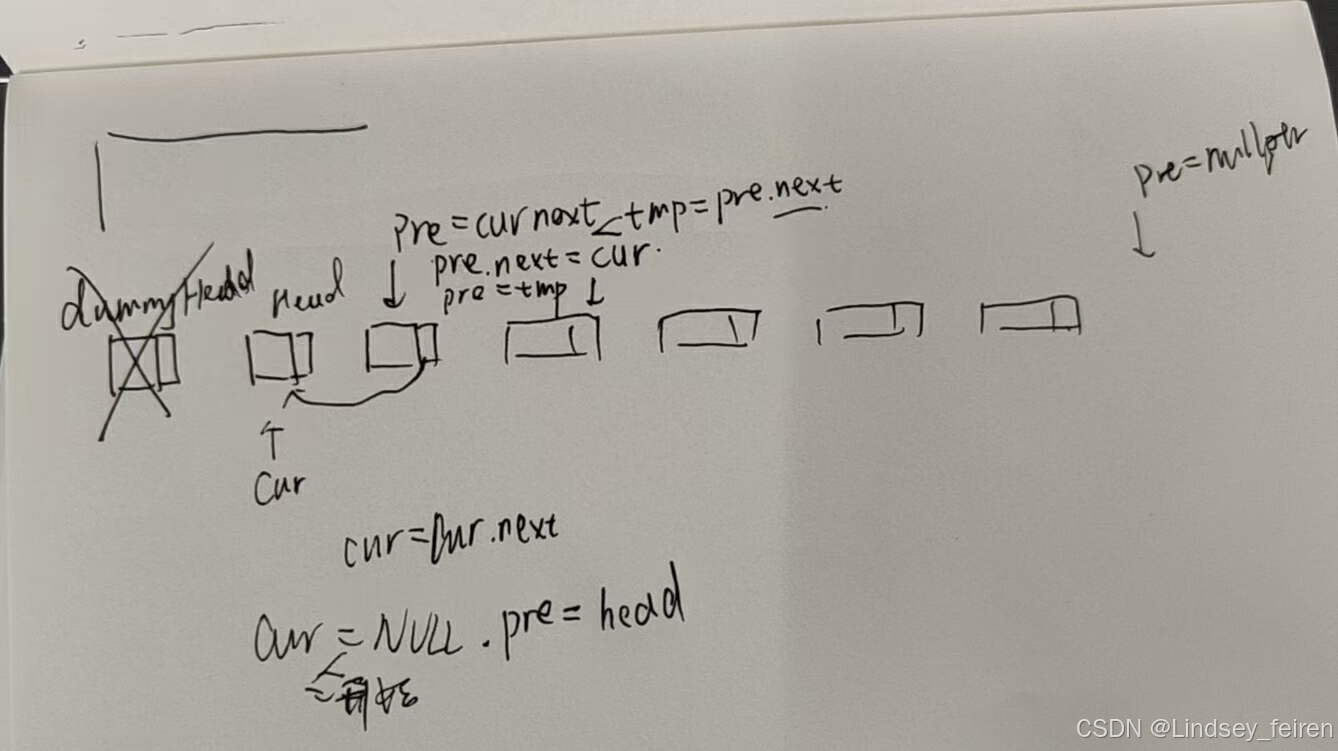 pre=nullptr
pre=cur next tmp=pre.next
pre.next=cur.
pre=tmp
dummyHead
Head
Cur
cur=cur.next
cur=NULL.pre=head
CSDN @Lindsey_feiren